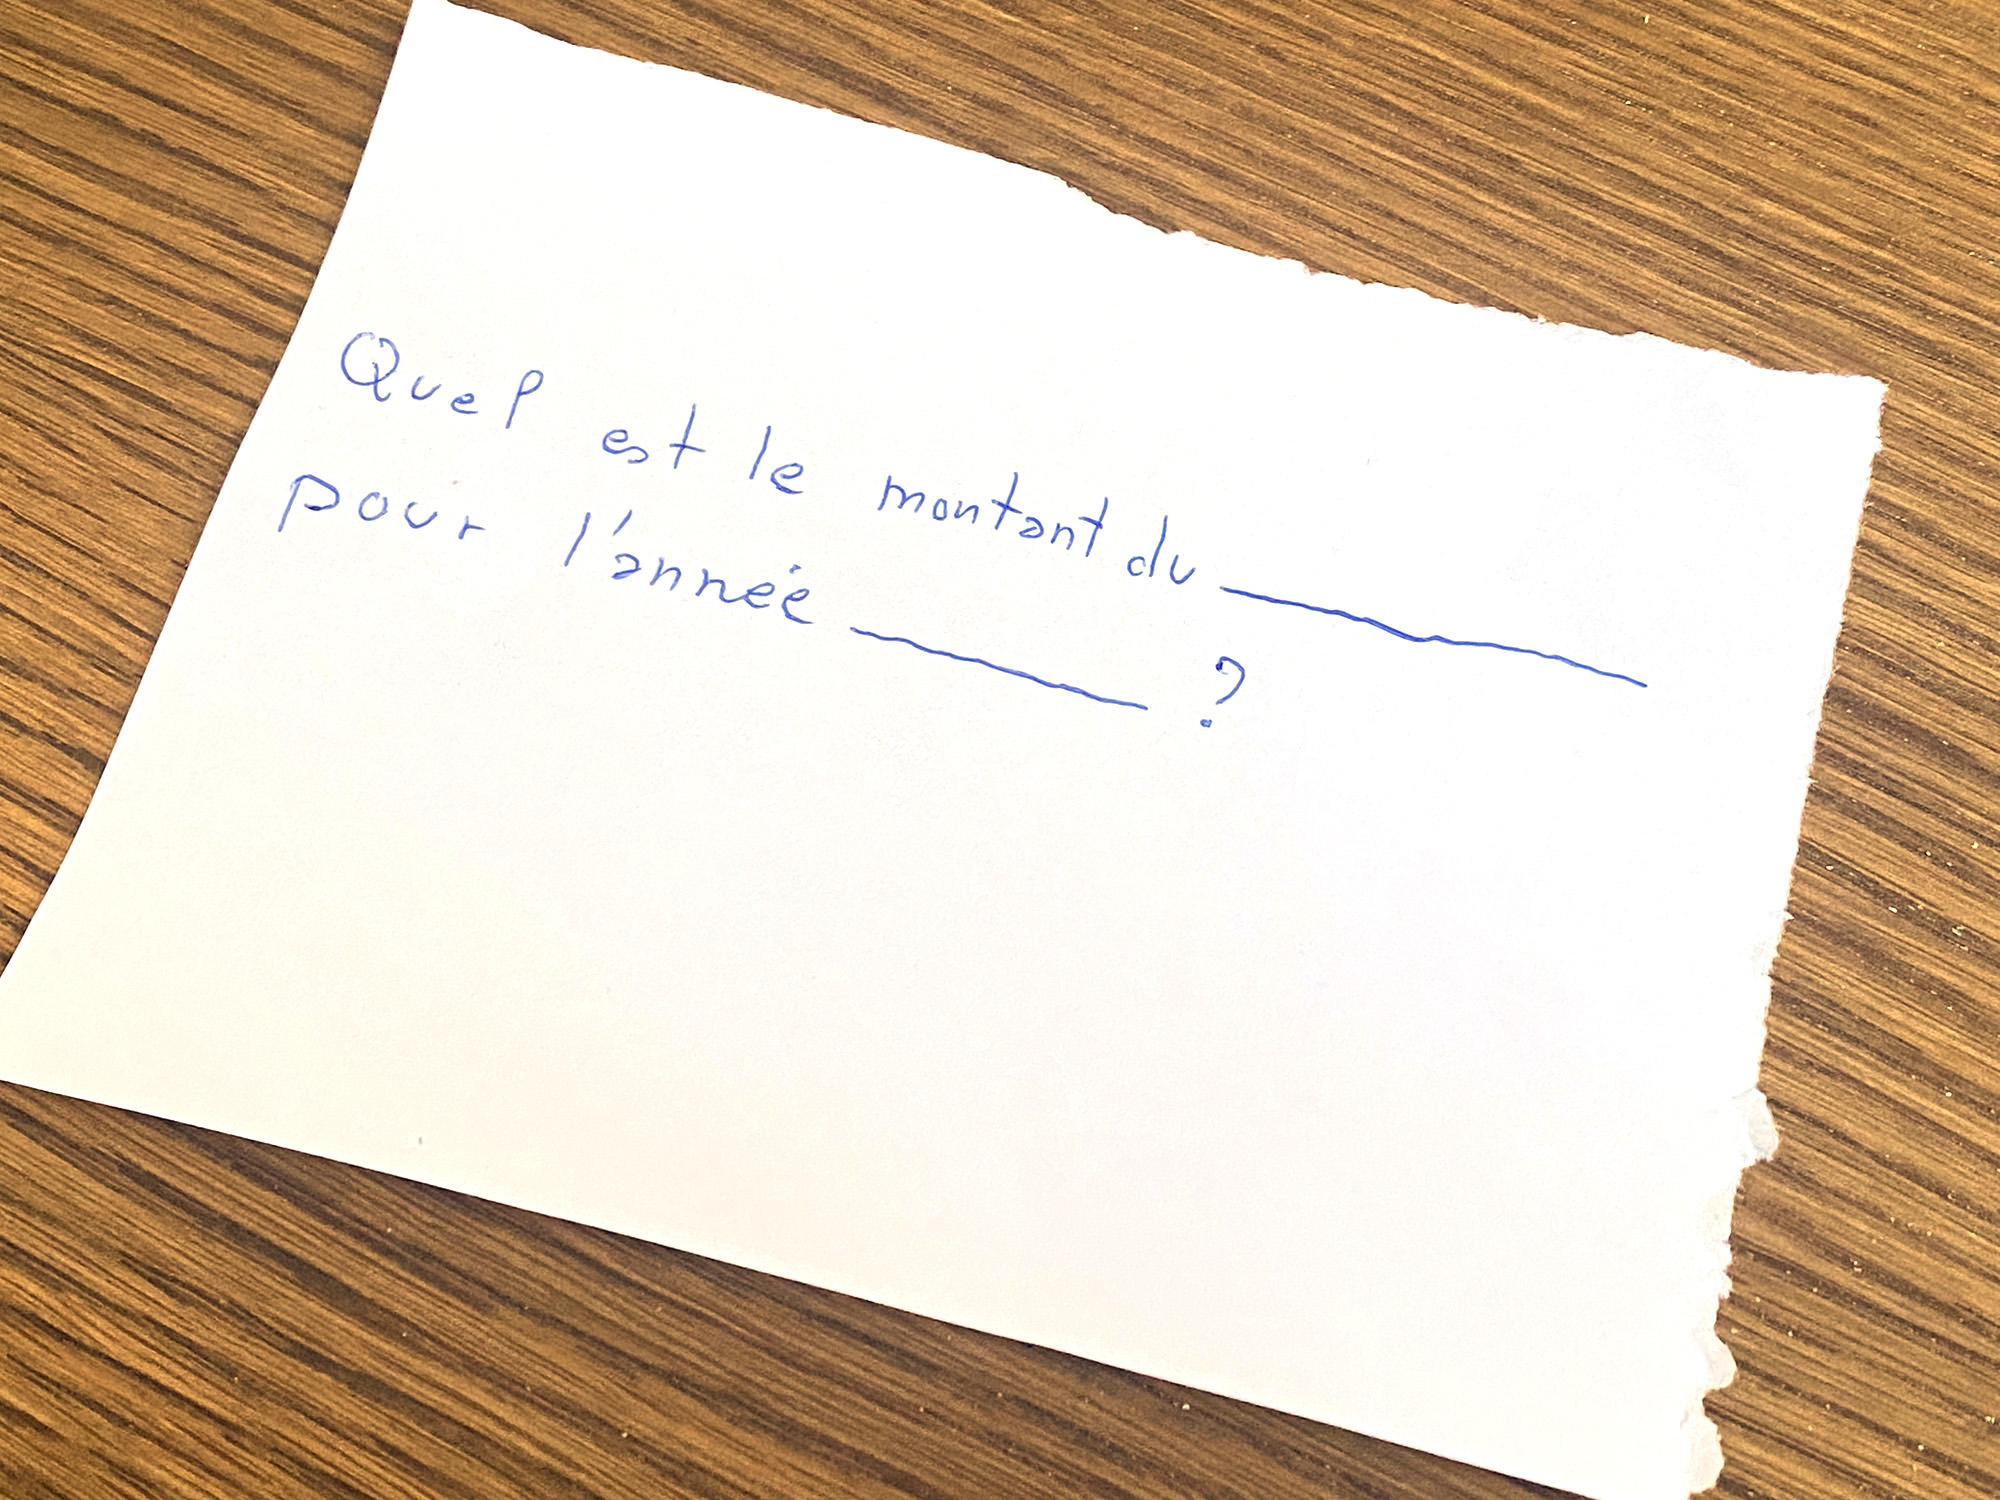 Quel est le montant du __________
pour l'année _______ ?